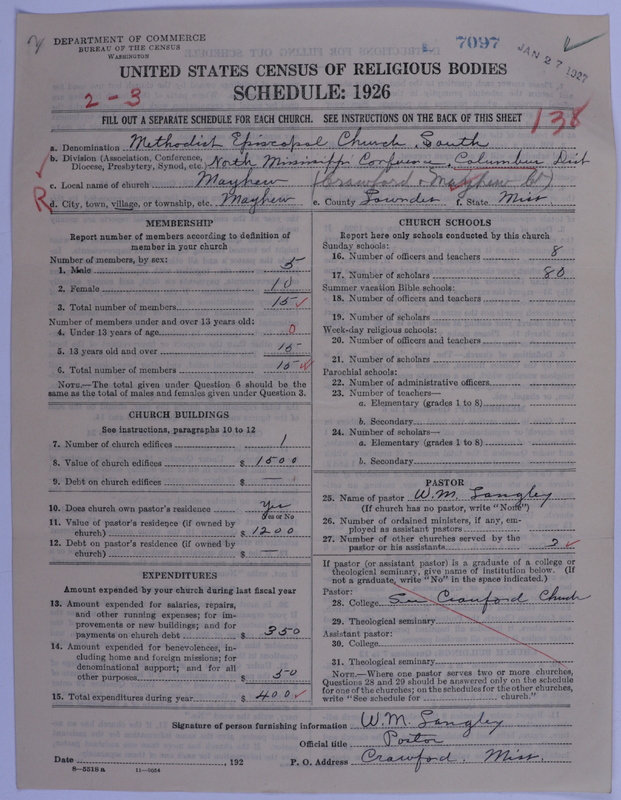 DEPARTMENT OF COMMERCE
BUREAU OF THE CENSUS
WASHINGTON
7097
JAN 27 1927
UNITED STATES CENSUS OF RELIGIOUS BODIES
2-3
SCHEDULE: 1926
FILL OUT A SEPARATE SCHEDULE FOR EACH CHURCH. SEE INSTRUCTIONS ON THE BACK OF THIS SHEET
138
a. Denomination Methodist Episcopal Church, South
b. Division (Association, Conference, Diocese, Presbytery, Synod, etc.) North Mississippi Conference, Columbus Dist
c. Local name of church Mayhew (Crawford & Mayhew Ct)
R
d. City, town, village, or township, etc. Mayhew e. County Lowndes f. State Miss
MEMBERSHIP
Report number of members according to definition of
member in your church
Number of members, by sex:
1. Male 5
2. Female 10
3. Total number of members 15
Number of members under and over 13 years old:
4. Under 13 years of age 0
5. 13 years old and over 15
6. Total number of members 15
NOTE.—The total given under Question 6 should be the
same as the total of males and females given under Question 3.
CHURCH BUILDINGS
See instructions, paragraphs 10 to 12
7. Number of church edifices 1
8. Value of church edifices $ 1500
9. Debt on church edifices $ —
10. Does church own pastor's residence Yes
Yes or No
11. Value of pastor's residence (if owned by
church) $ 1200
12. Debt on pastor's residence (if owned by
church) $ —
EXPENDITURES
Amount expended by your church during last fiscal year
13. Amount expended for salaries, repairs,
and other running expenses; for im-
provements or new buildings; and for
payments on church debt $ 350
14. Amount expended for benevolences, in-
cluding home and foreign missions; for
denominational support; and for all
other purposes $ 50
15. Total expenditures during year $ 400
CHURCH SCHOOLS
Report here only schools conducted by this church
Sunday schools:
16. Number of officers and teachers 8
17. Number of scholars 80
Summer vacation Bible schools:
18. Number of officers and teachers
19. Number of scholars
Week-day religious schools:
20. Number of officers and teachers
21. Number of scholars
Parochial schools:
22. Number of administrative officers
23. Number of teachers—
a. Elementary (grades 1 to 8)
b. Secondary
24. Number of scholars—
a. Elementary (grades 1 to 8)
b. Secondary
PASTOR
25. Name of pastor W.M. Langley
(If church has no pastor, write "None")
26. Number of ordained ministers, if any, em-
ployed as assistant pastors
27. Number of other churches served by the
pastor or his assistants 2
If pastor (or assistant pastor) is a graduate of a college or
theological seminary, give name of institution below. (If
not a graduate, write "No" in the space indicated.)
Pastor:
28. College See Crawford Church
29. Theological seminary
Assistant pastor:
30. College
31. Theological seminary
NOTE.—Where one pastor serves two or more churches,
Questions 28 and 29 should be answered only on the schedule
for one of the churches; on the schedules for the other churches,
write "See schedule for ............ church."
Signature of person furnishing information W.M. Langley
Official title Pastor
Date , 192 P. O. Address Crawford, Miss.
8—5518 a 11—9054